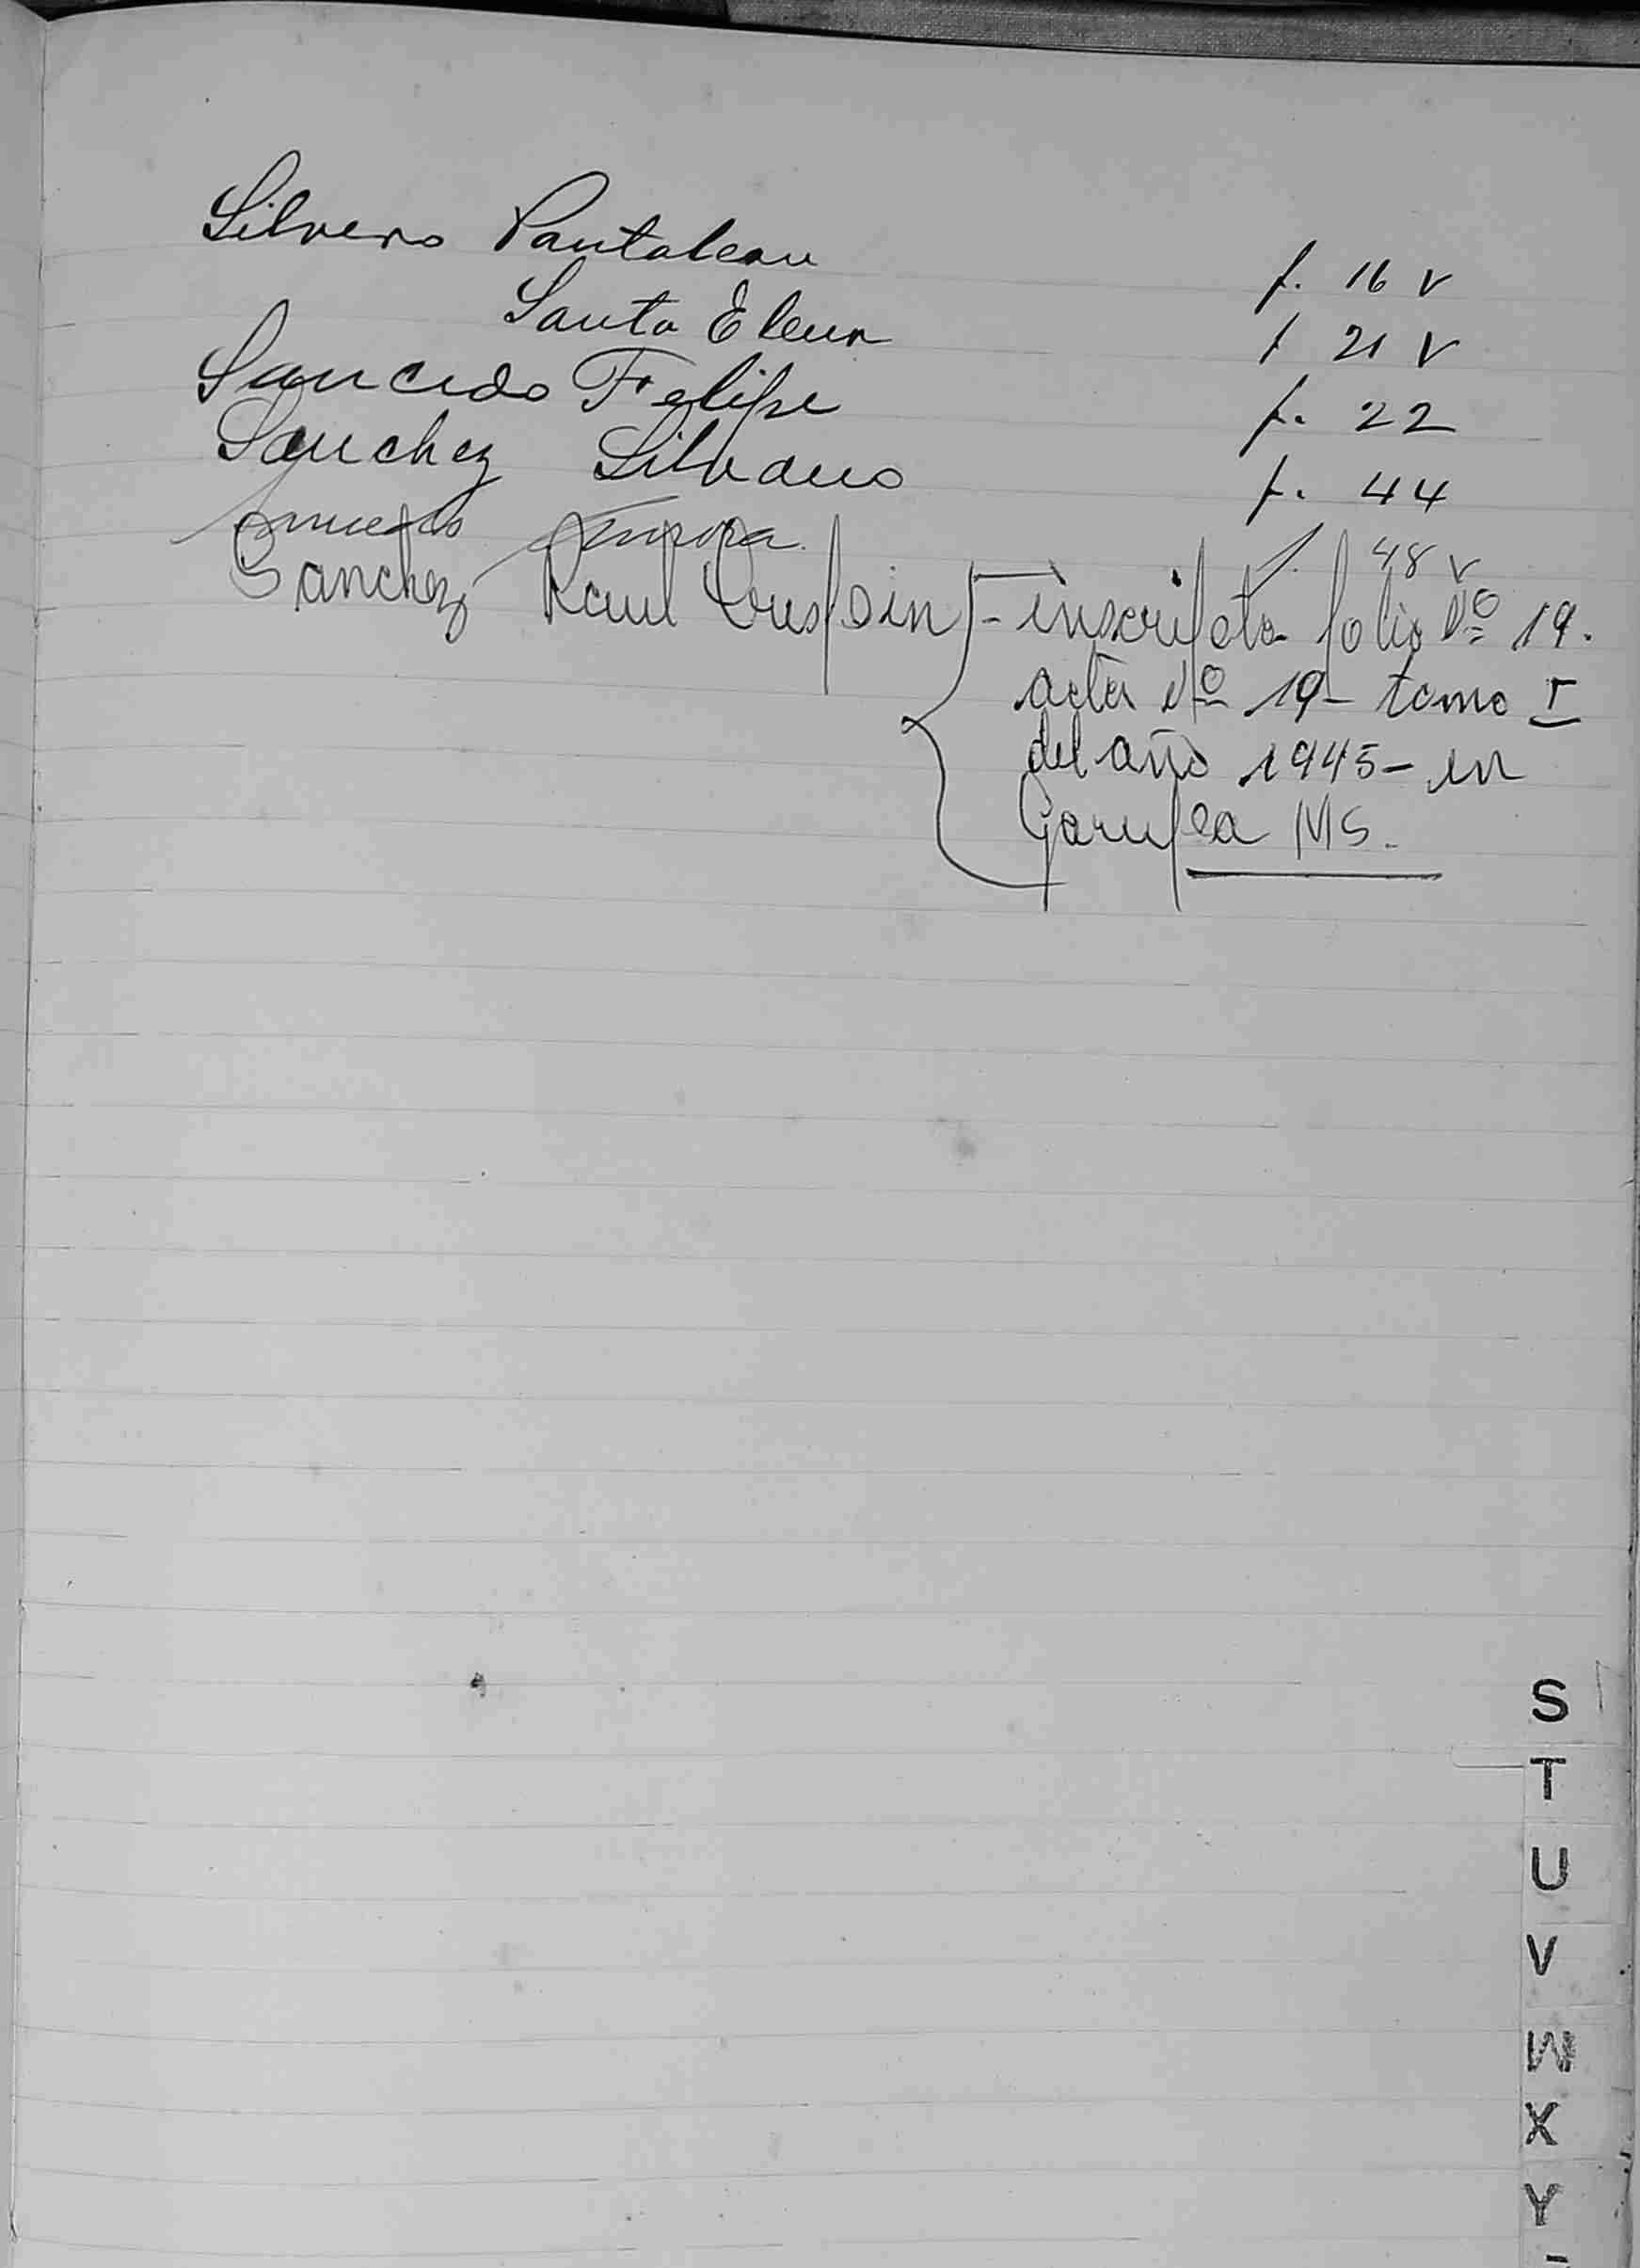 Silvero Pantaleon f. 16 v
Santa Elena f 21 v
Saucedo Felipe f. 22
Sanchez Silvano f. 44
Aurora f. 48 v
Sanchez Raul - inscripta folio Nº 19.
acta Nº 19 - tomo I
del año 1945 - en
Garupea MS.
S
T
U
V
W
X
Y